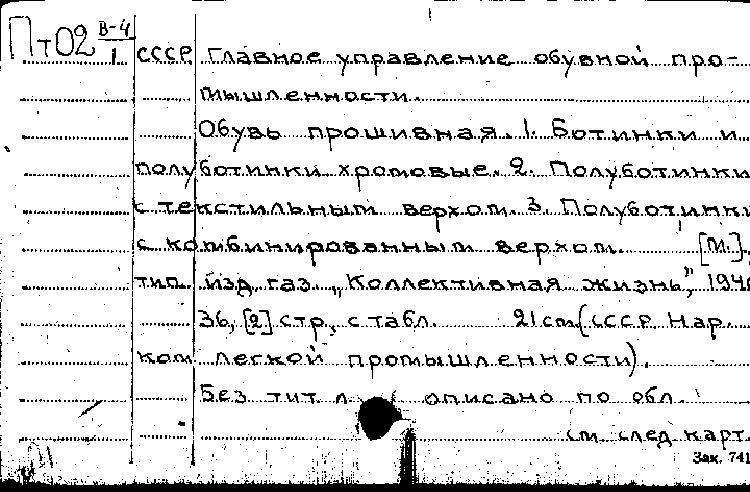 Пт02 В-4
1 СССР Главное управление обувной про-
мышленности.
Обувь прошивная. 1. Ботинки и
полуботинки хромовые. 2. Полуботинки
с текстильным верхом. 3. Полуботинки
с комбинированным верхом. [М.],
тип. изд. газ. „Коллективная жизнь", 194
36, [2] стр., с табл. 21 см. (СССР. Нар.
ком. легкой промышленности).
Без тит. л. описано по обл.
см. след. карт.
Зак. 741